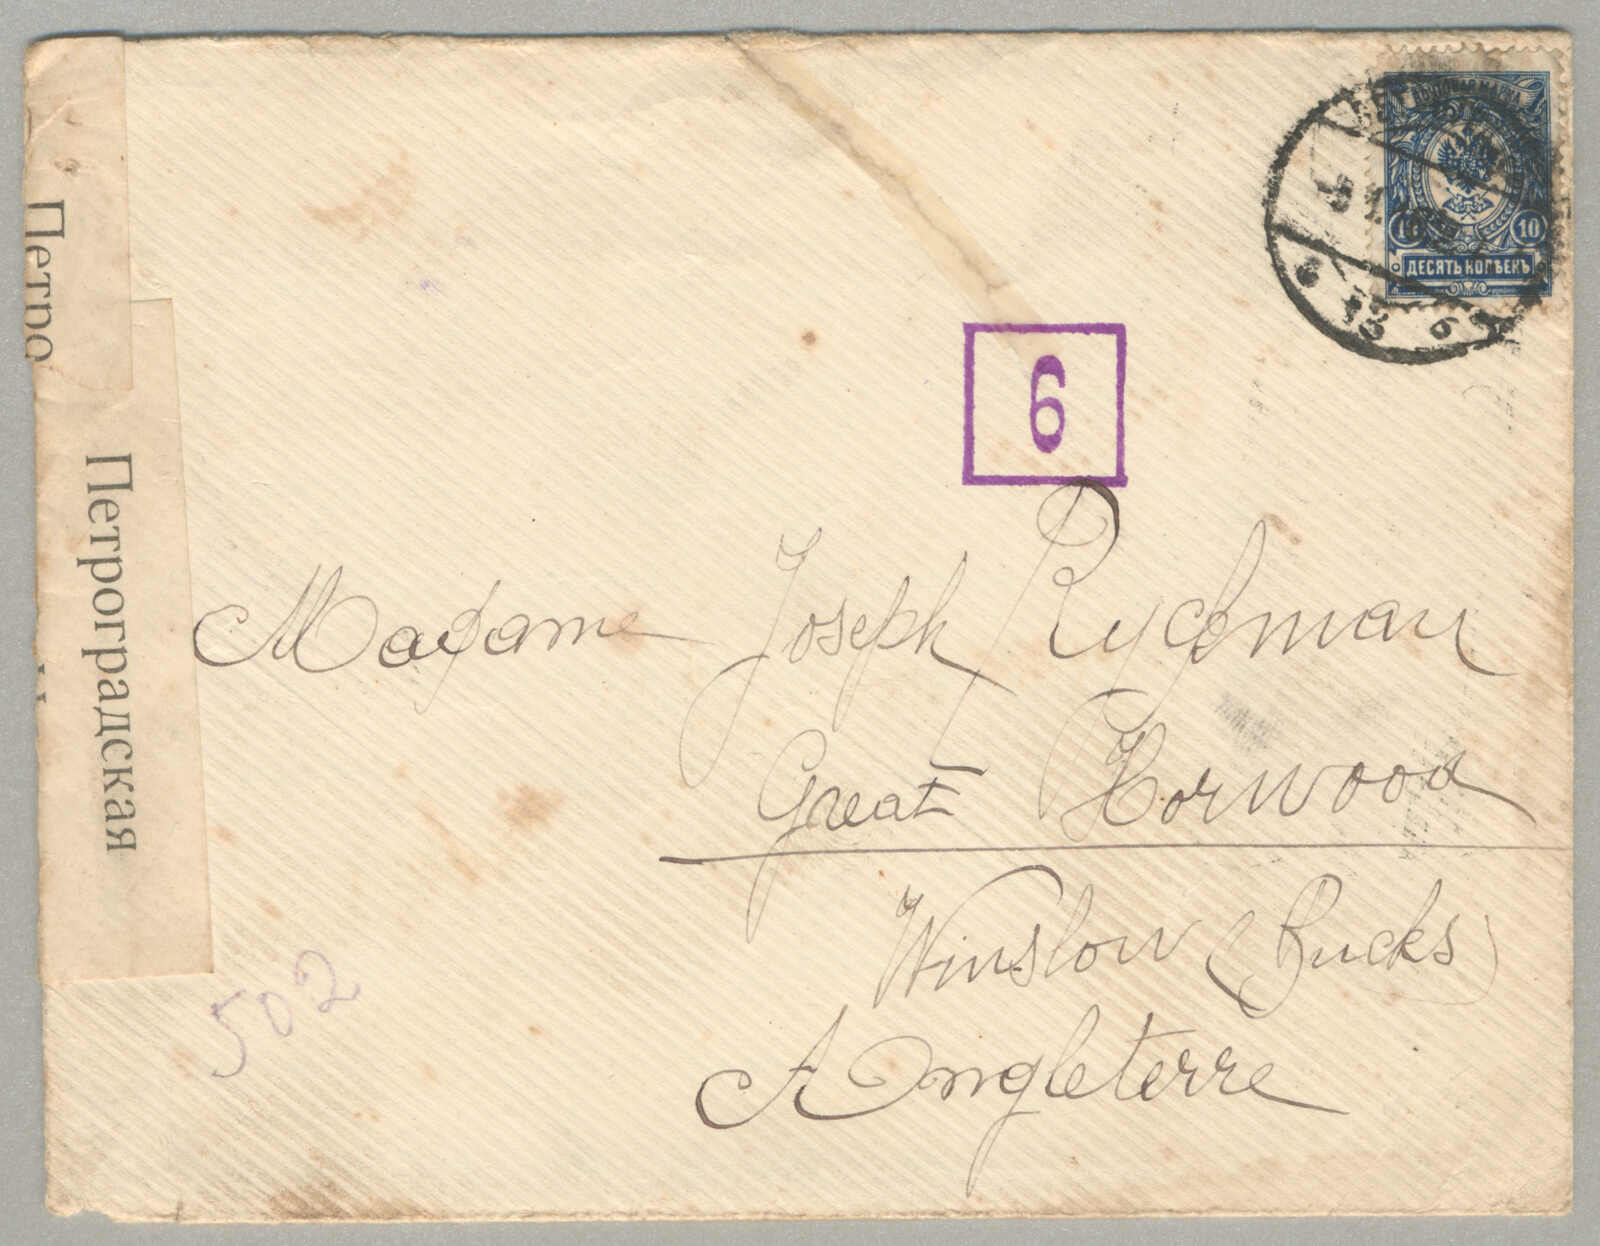 ПОЧТОВАЯ МАРКА
10 10
ДЕСЯТЬ КОПѢЕКЪ
6
Петро
Петроградская
Madame Joseph Ryckman
Great Horwood
Winslow (Bucks)
Angleterre
502